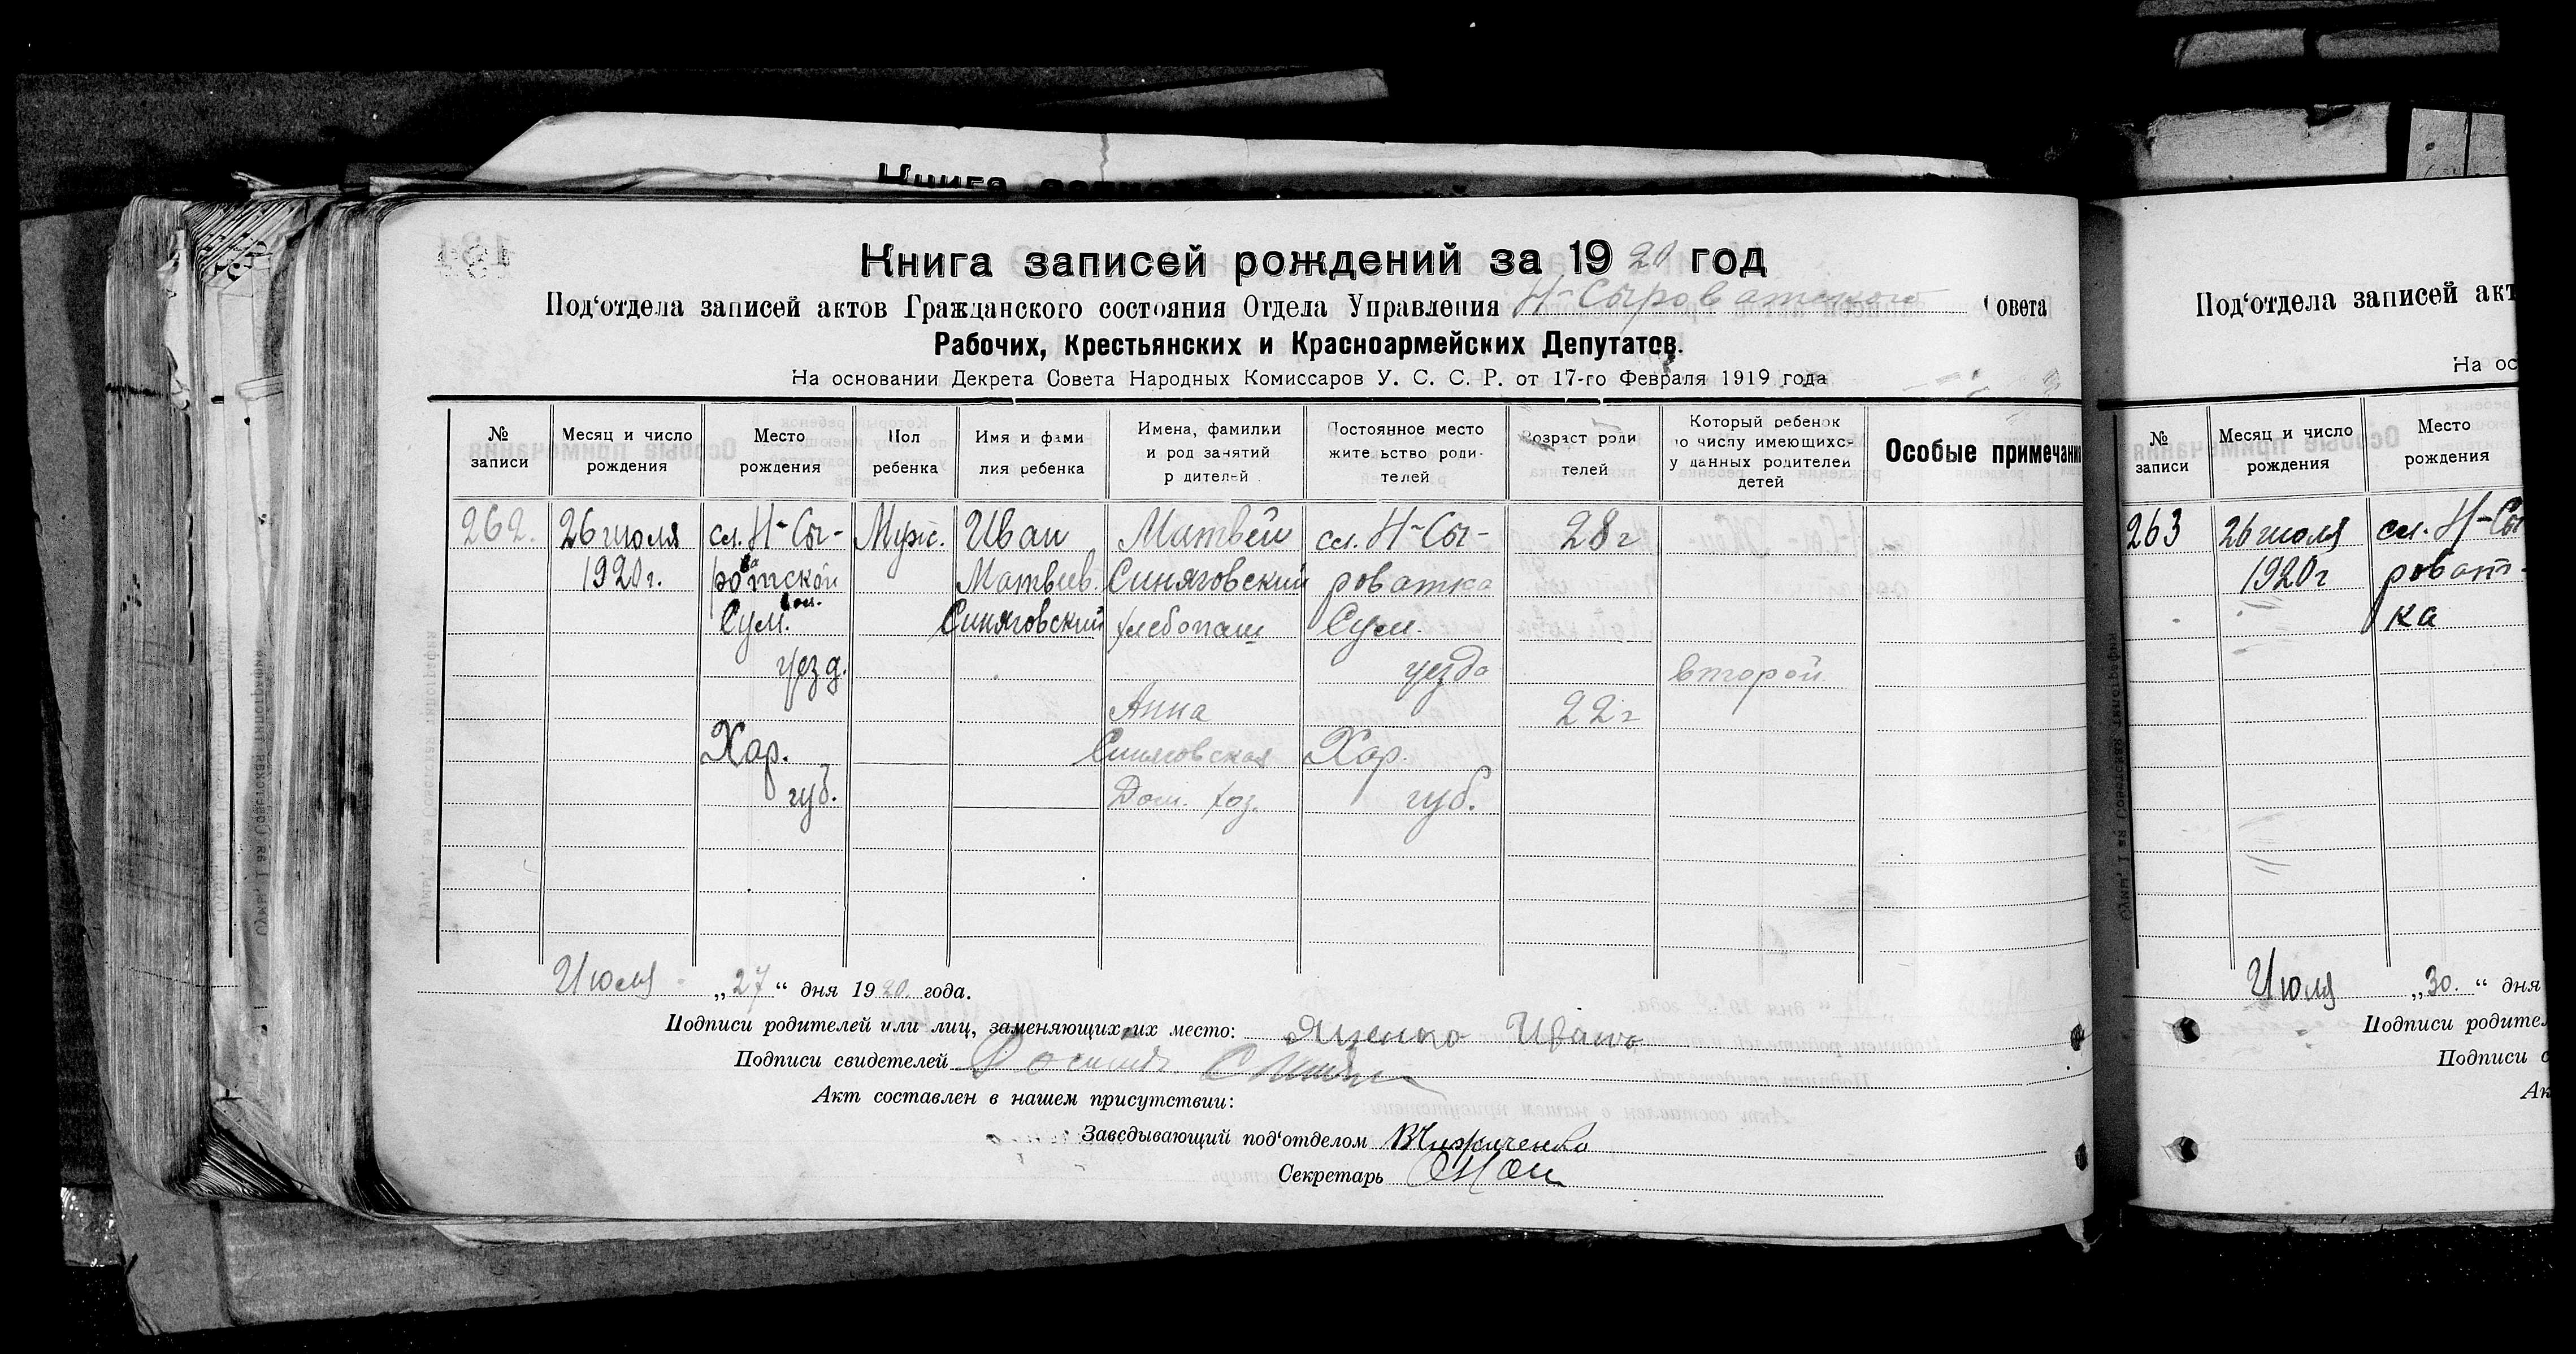 Книга записей рождений за 1920 год
Под‘отдела записей актов Гражданского состояния Отдела Управления Н-Сыроватского Совета
Рабочих, Крестьянских и Красноармейских Депутатов.
На основании Декрета Совета Народных Комиссаров У. С. С. Р. от 17-го Февраля 1919 года
№ записи
Месяц и число рождения
Место рождения
Пол ребенка
Имя и фами
лия ребенка
Имена, фамилии
и род занятий
р дителей
Постоянное место
жите ьство роди-
телей
Возраст роди
телей
Который ребенок
по числу имеющихс-
у данных родителей
детей
Особые примечани
262.
26 июля
1920 г.
сл. Н-Сы-
роватской
вол.
Сум.
уезд.
Хар.
губ.
Муж.
Иван
Матвеев.
Синяговский
Матвей
Синяговский
хлебопаш
Анна
Синяговская
Дом. хоз.
сл. Н-Сы-
роватка
Сум.
уезда
Хар.
губ.
28 г
22 г
второй
Июля „27“ дня 1920 года.
Подписи родителей или лиц, заменяющих их место: Яценко Иванъ
Подписи свидетелей
Акт составлен в нашем присутствии:
Заведывающий под‘отделом
Секретарь
Под‘отдела записей акт
На ос
№ записи
Месяц и число рождения
Место рождения
263
26 июля
1920 г
сл. Н-Сы
роват-
ка
Июля „30.“ дня
Подписи родител
Подписи с
Ак